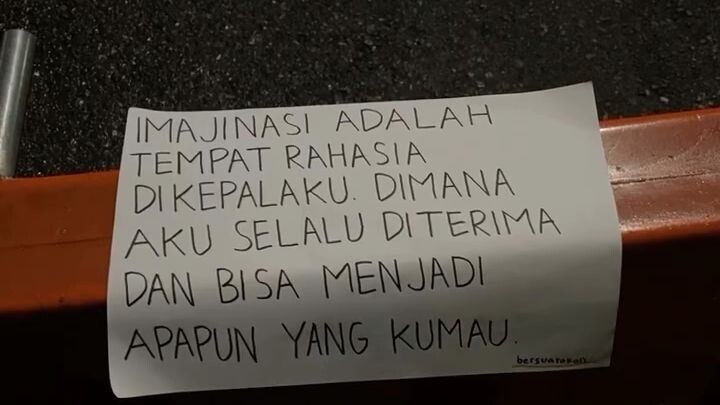 IMAJINASI ADALAH
TEMPAT RAHASIA
DIKEPALAKU. DIMANA
AKU SELALU DITERIMA
DAN BISA MENJADI
APAPUN YANG KUMAU.
bersuarakan